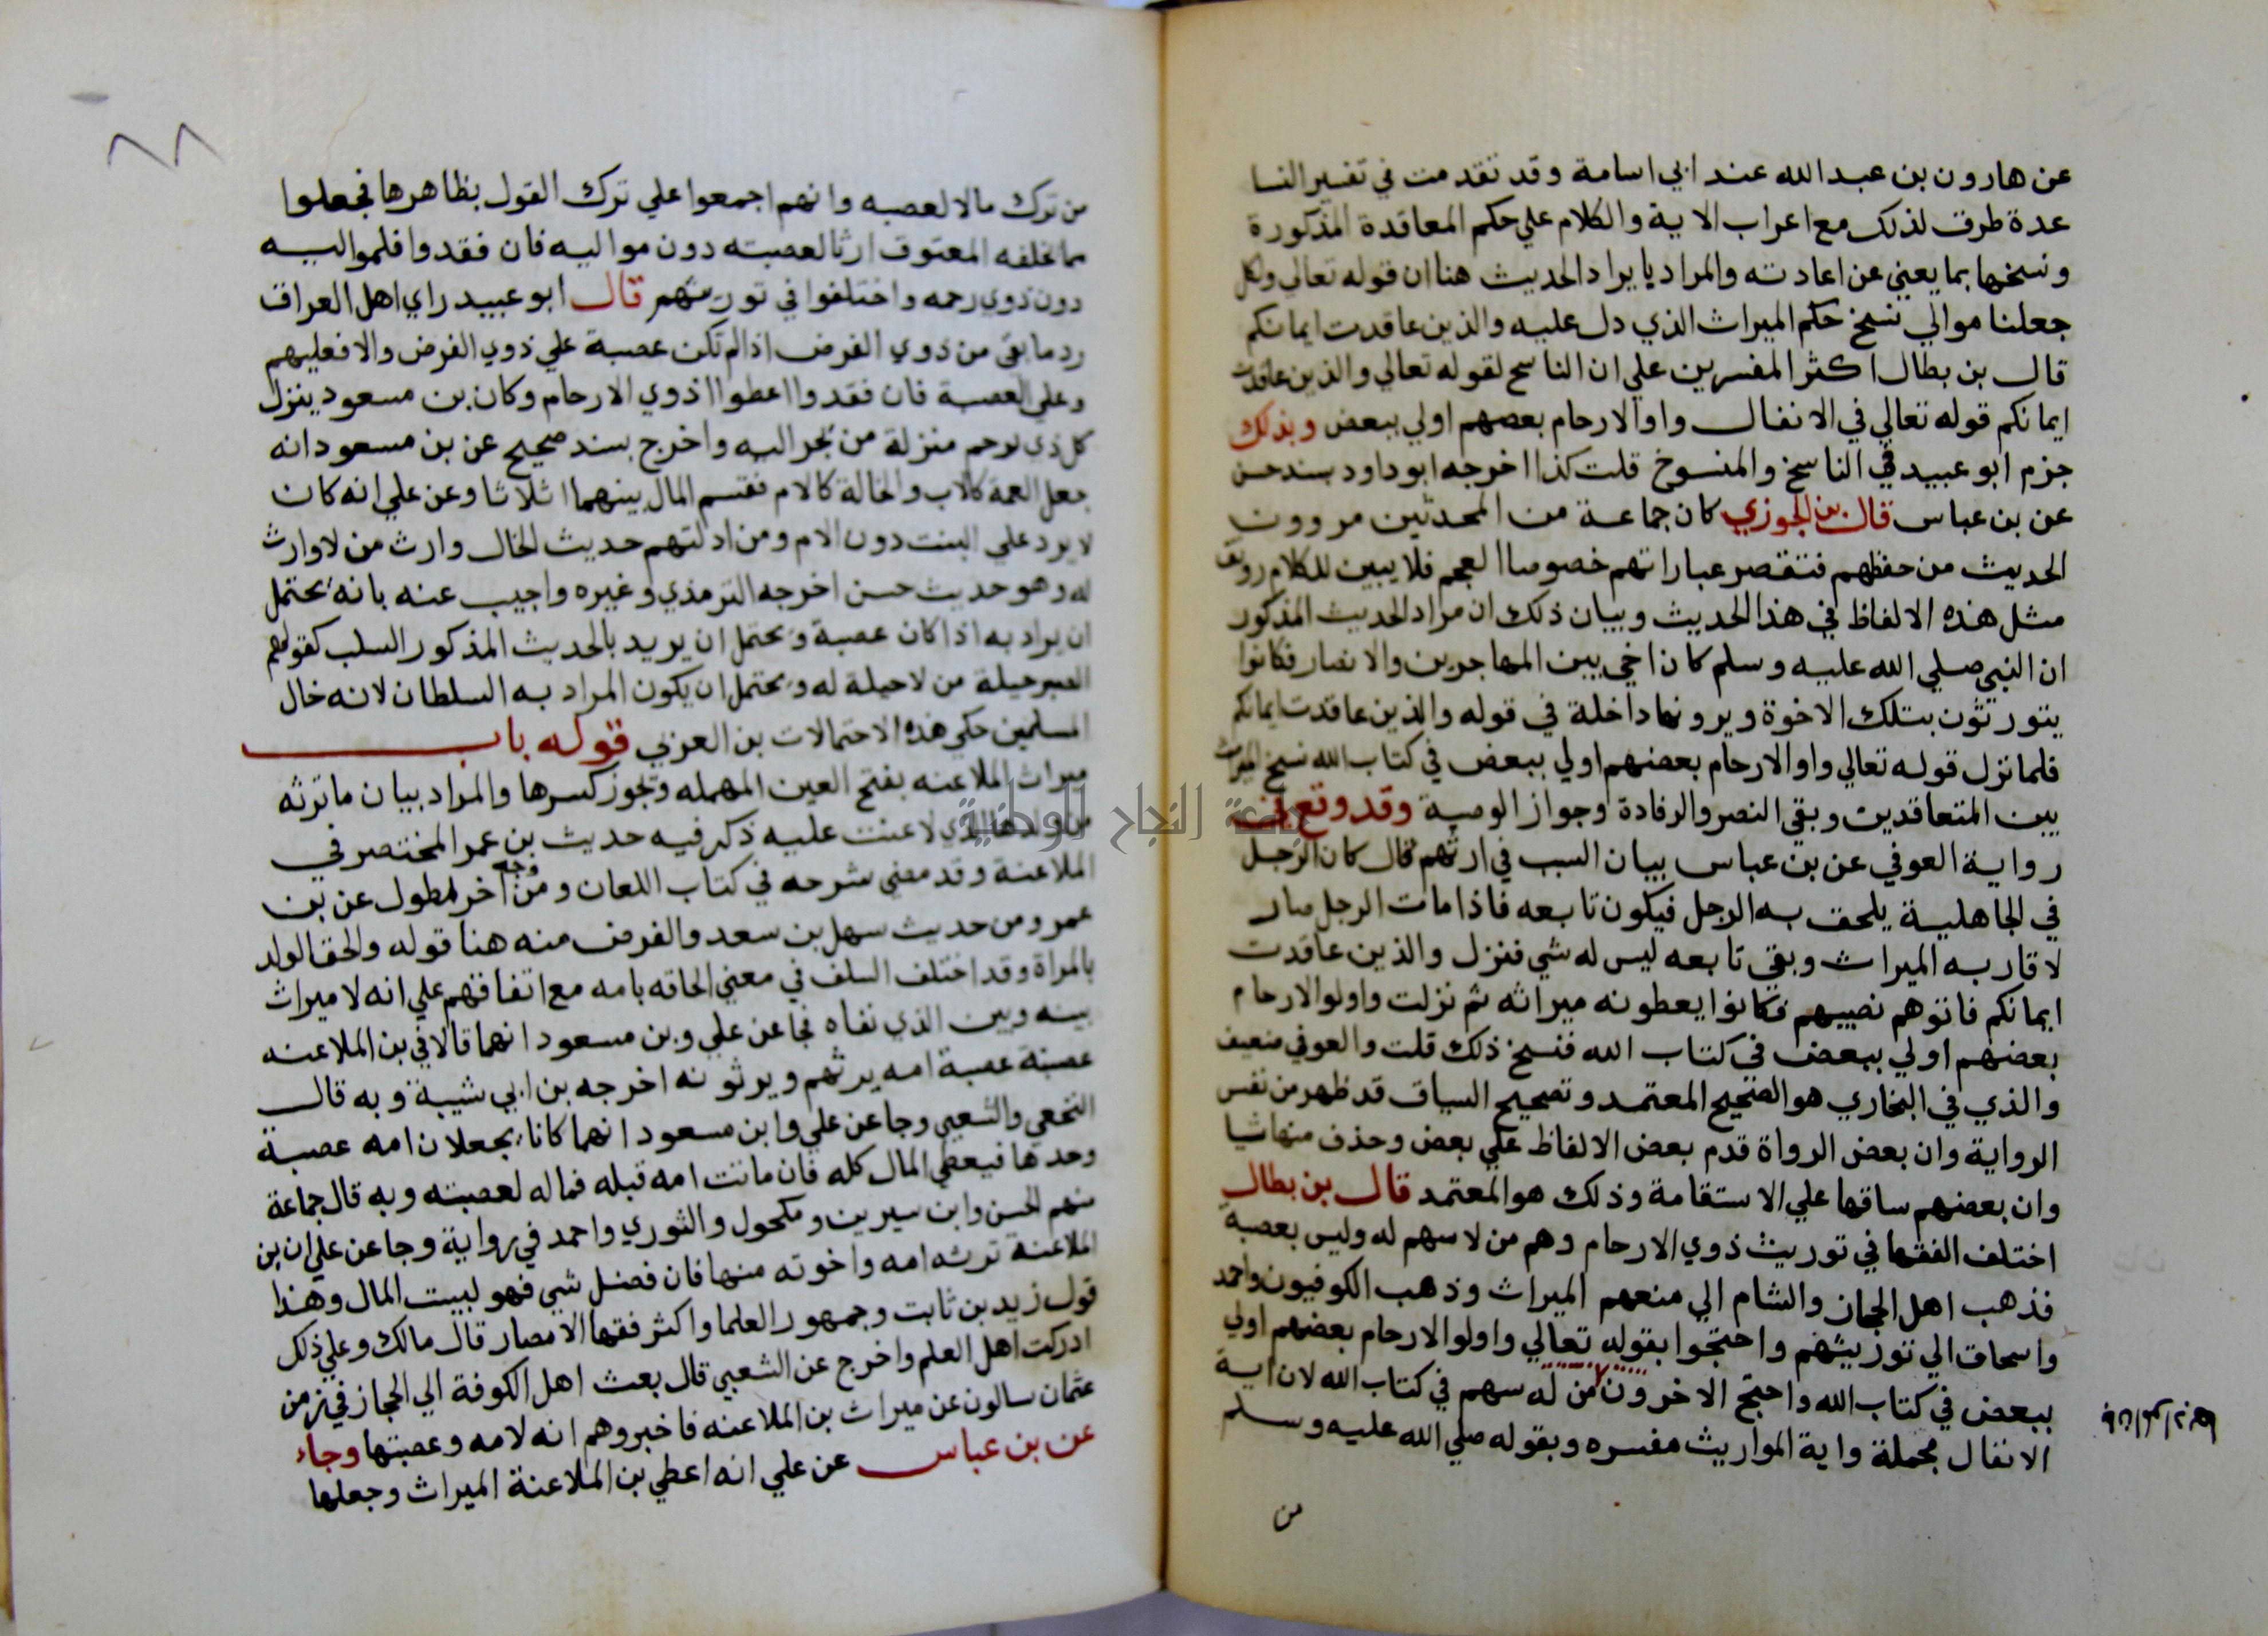 عن هارون بن عبد الله عند ابي اسامة وقد تقدمت في تفسير النسا
عدة طرق لذلك مع اعراب الاية والكلام علي حكم المعاقدة المذكورة
ونسخها بما يغني عن اعادته والمراد بايراد الحديث هنا ان قوله تعالي ولكل
جعلنا موالي نسخ حكم الميراث الذي دل عليه والذين عاقدت ايمانكم
قال بن بطال اكثر المفسرين علي ان الناسخ لقوله تعالي والذين عاقدت
ايمانكم قوله تعالي في الانفال واو الارحام بعضهم اولي ببعض وبذلك
جزم ابو عبيد في الناسخ والمنسوخ قلت كذا اخرجه ابو داود بسند حسن
عن بن عباس قال بن الجوزي كان جماعة من المحدثين مروون
الحديث من حفظهم فتقصر عباراتهم خصوصا العجم فلا يبين للكلام رونق
مثل هذه الالفاظ في هذا الحديث وبيان ذلك ان مراد الحديث المذكور
ان النبي صلي الله عليه وسلم كان اخي بين المهاجرين والانصار فكانوا
يتورثون بتلك الاخوة ويرونها داخلة في قوله والذين عاقدت ايمانكم
فلما نزل قوله تعالي واو الارحام بعضهم اولي ببعض في كتاب الله نسخ الميراث
بين المتعاقدين وبقي النصر والرفادة وجواز الوصية وقد وقع في
رواية العوفي عن بن عباس بيان السبب في ارثهم قال كان الرجل
في الجاهلية يلحق به الرجل فيكون تابعه فاذا مات الرجل صار
لاقاربه الميراث وبقي تابعه ليس له شي فنزل والذين عاقدت
ايمانكم فاتوهم نصيبهم فكانوا يعطونه ميراثه ثم نزلت واولوا الارحام
بعضهم اولي ببعض في كتاب الله فنسخ ذلك قلت والعوفي ضعيف
والذي في البخاري هو الصحيح المعتمد وتصحيح السياق قد ظهر من نفس
الرواية وان بعض الرواة قدم بعض الالفاظ علي بعض وحذف منها شيا
وان بعضهم ساقها علي الاستقامة وذلك هو المعتمد قال بن بطال
اختلف الفقها في توريث ذوي الارحام وهم من لا سهم له وليس بعصبة
فذهب اهل الحجاز والشام الي منعهم الميراث وذهب الكوفيون واحمد
واسحاق الي توريثهم واحتجوا بقوله تعالي واولوا الارحام بعضهم اولي
ببعض في كتاب الله واحتج الاخرون من له سهم في كتاب الله لان اية
الانفال مجملة واية المواريث مفسره وبقوله صلي الله عليه وسلم
من
٨٨
من ترك مالا لعصبه وانهم اجمعوا علي ترك القول بظاهرها فجعلوا
ما يخلفه المعتوق ارثا لعصبته دون مواليه فان فقدوا فلمواليه
دون ذوي رحمه واختلفوا في توريثهم قال ابو عبيد راي اهل العراق
رد ما بقي من ذوي الفرض اذا لم تكن عصبة علي ذوي الفرض والا فعليهم
وعلي العصبة فان فقدوا اعطوا ذوي الارحام وكان بن مسعود ينزل
كل ذي رحم منزلة من يجر اليه واخرج بسند صحيح عن بن مسعود انه
جعل العمة كالاب والخالة كالام فقسم المال بينهما اثلاثا وعن علي انه كان
لا يرد علي البنت دون الام ومن ادلتهم حديث الخال وارث من لا وارث
له وهو حديث حسن اخرجه الترمذي وغيره واجيب عنه بانه يحتمل
ان يراد به اذا كان عصبة ويحتمل ان يريد بالحديث المذكور السلب كقولهم
الصبر حيلة من لا حيلة له ويحتمل ان يكون المراد به السلطان لانه خال
المسلمين حكي هذه الاحتمالات بن العربي قوله باب
ميراث الملاعنه بفتح العين المهمله وتجوز كسرها والمراد بيان ما ترثه
من ولدها الذي لاعنت عليه ذكر فيه حديث بن عمر المختصر في
الملاعنة وقد مضي شرحه في كتاب اللعان ومن وجه اخر مطول عن بن
عمر ومن حديث سهل بن سعد والغرض منه هنا قوله والحق الولد
بالمراة وقد اختلف السلف في معني الحاقه بامه مع اتفاقهم علي انه لا ميراث
بينه وبين الذي نفاه فجا عن علي وبن مسعود انهما قالا في بن الملاعنه
عصبته عصبة امه يرثهم ويرثونه اخرجه بن ابي شيبة وبه قال
النخعي والشعبي وجا عن علي وابن مسعود انهما كانا يجعلان امه عصبة
وحدها فيعطي المال كله فان ماتت امه قبله فماله لعصبته وبه قال جماعة
منهم الحسن وابن سيرين ومكحول والثوري واحمد في رواية وجا عن علي ان بن
الملاعنة ترثه امه واخوته منها فان فضل شي فهو لبيت المال وهذا
قول زيد بن ثابت وجمهور العلما واكثر فقها الامصار قال مالك وعلي ذلك
ادركت اهل العلم واخرج عن الشعبي قال بعث اهل الكوفة الي الحجاز في زمن
عثمان سالون عن ميراث بن الملاعنه فاخبروهم انه لامه وعصبتها وجاء
عن بن عباس عن علي انه اعطي بن الملاعنة الميراث وجعلها
جامعة النجاح الوطنية